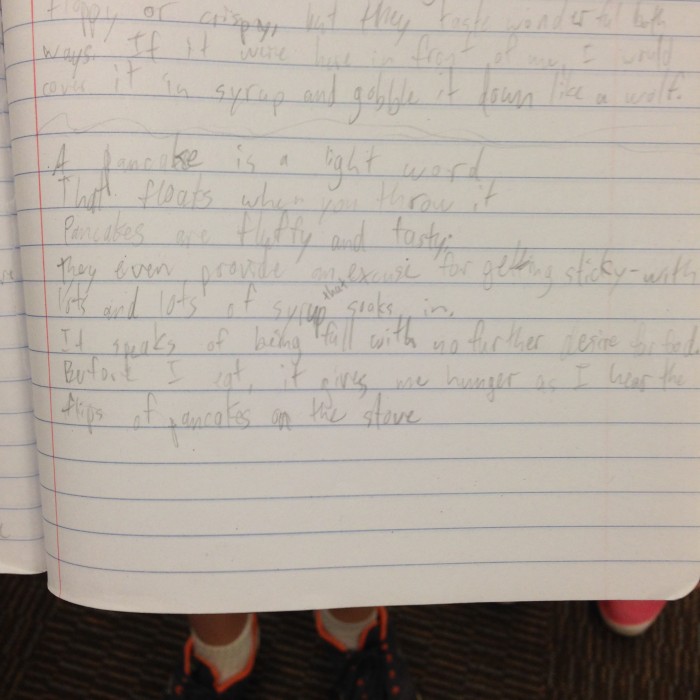 floppy or crispy, but they taste wonderful both
ways. If it were here in front of me, I would
cover it in syrup and gobble it down like a wolf.
A pancake is a light word
That floats when you throw it
Pancakes are fluffy and tasty;
they even provide an excuse for getting sticky-with
lots and lots of syrup that soaks in.
It speaks of being full with no further desire for food.
Before I eat, it gives me hunger as I hear the
flips of pancakes on the stove